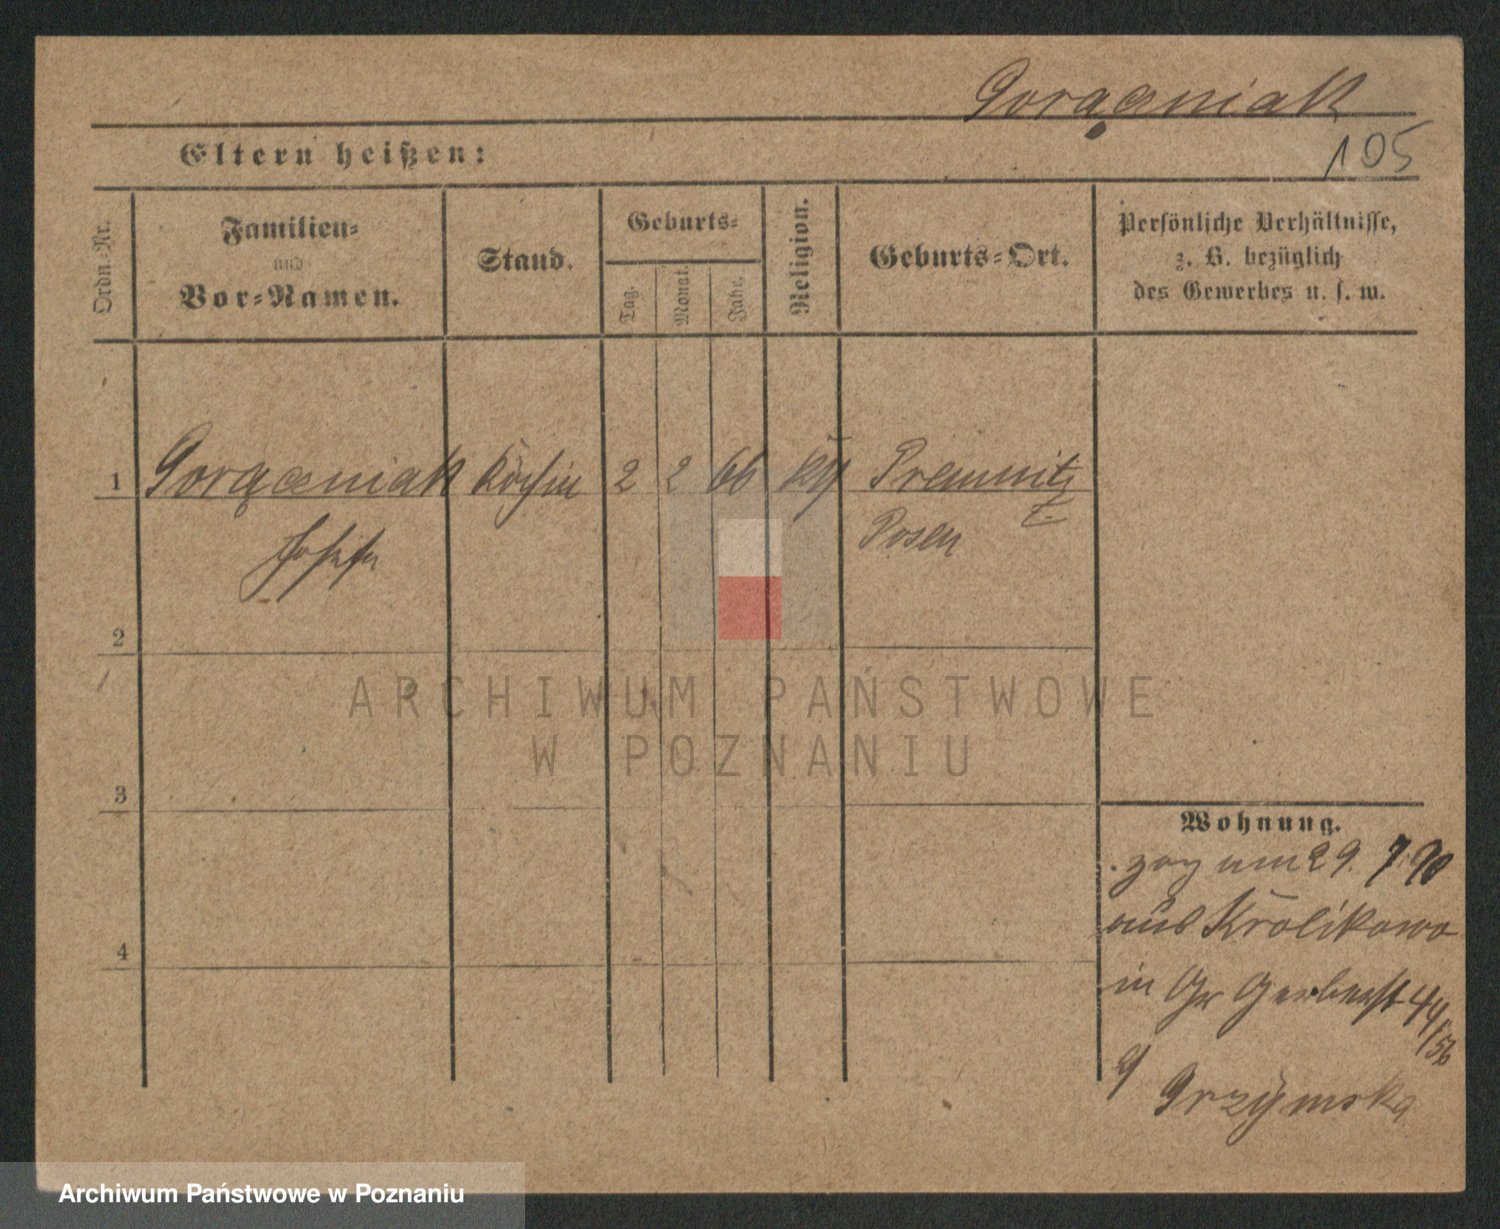 Gorączniak
105
Eltern heißen:
Ordn.-Nr.
Familien-
und
Vor-Namen.
Stand.
Geburts-
Tag.
Monat.
Jahr.
Religion.
Geburts-Ort.
Persönliche Verhältnisse,
z. B. bezüglich
des Gewerbes u. s. w.
1 Köchin 2 2 66
Posen
2
3
4
Wohnung.
zog am 29. 7. 90
aus Krolikowo
in Gr Gerberst 44/56
Grzymska
ARCHIWUM PAŃSTWOWE
W POZNANIU
Archiwum Państwowe w Poznaniu